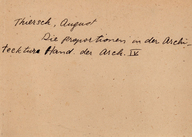 Thiersch, August
Die proportionen in der Archi-
tektura Hand. der Arch. IV